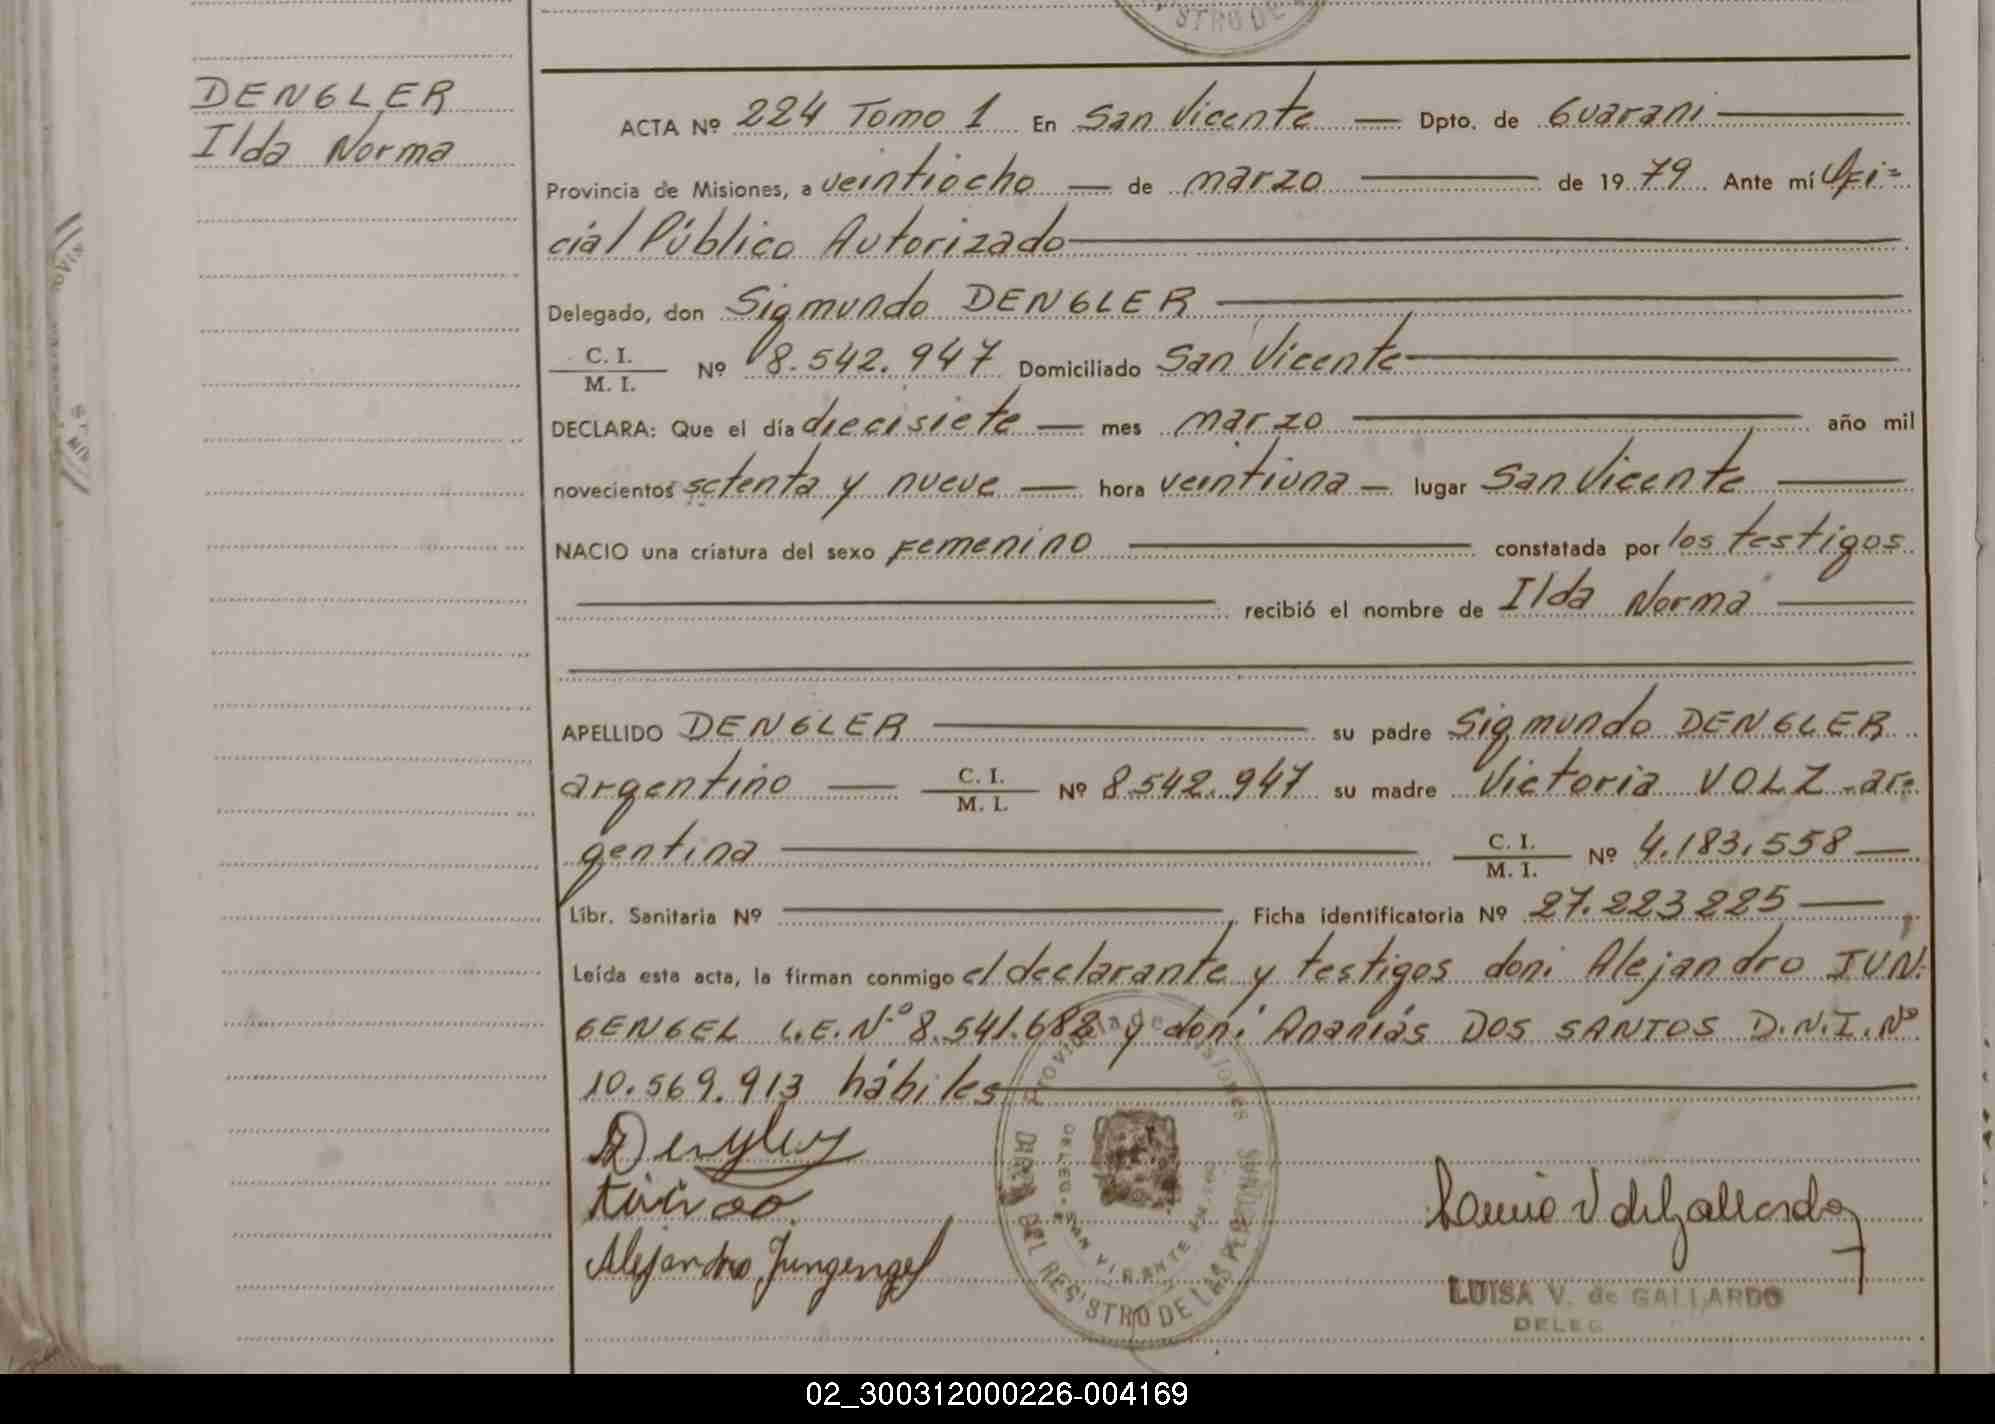 STRO DE
DENGLER
Ilda Norma
ACTA Nº 224 Tomo 1 En San Vicente — Dpto. de Guarani
Provincia de Misiones, a veintiocho — de marzo — de 1979 Ante mí Ofi=
cial Público Autorizado
Delegado, don Sigmundo DENGLER
C. I.
M. I.
Nº 8.542.947 Domiciliado San Vicente
DECLARA: Que el día diecisiete — mes marzo — año mil
novecientos setenta y nueve — hora veintiuna — lugar San Vicente
NACIO una criatura del sexo Femenino — constatada por los testigos
recibió el nombre de Ilda Norma
APELLIDO DENGLER — su padre Sigmundo DENGLER
argentino — C. I. / M. I. Nº 8.542.947 su madre Victoria VOLZ - ar=
gentina — C. I. / M. I. Nº 4.183.558 —
Libr. Sanitaria Nº — Ficha identificatoria Nº 27.223.225 —
Leída esta acta, la firman conmigo el declarante y testigos don: Alejandro JUN-
GENGEL L.E. Nº 8.541.682 y don: Ananías DOS SANTOS D.N.I. Nº
10.569.913 hábiles
Dengler
Alejandro Jungengel
Provincia de Misiones
DELEG. SAN VICENTE
DIREC. DEL REGISTRO DE LAS PERSONAS
Luisa V de Gallardo
LUISA V. de GALLARDO
DELEG
02_300312000226-004169